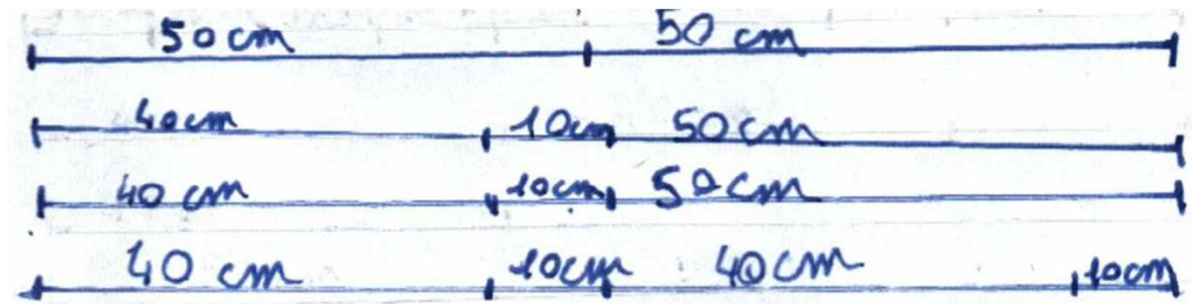 50cm 50 cm
40cm 10cm 50cm
40 cm 10cm 50cm
40 cm 10cm 40cm 10cm